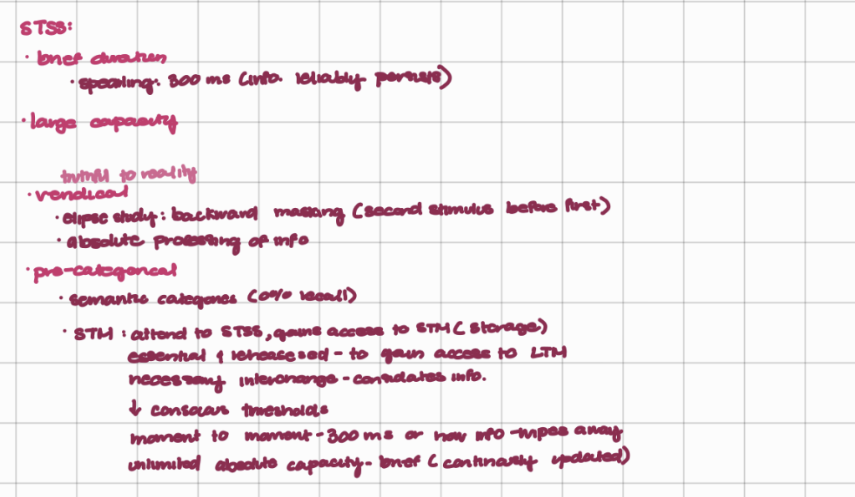 STSS:
· brief duration
· sperling: 300 ms (info reliably persists)
· large capacity
truthful to reality
· veridical
· elipse study: backward masking (second stimulus before first)
· absolute processing of info
· pre-categorical
· semantic categories (0% recall)
· STM: attend to STSS, gains access to STM (storage)
essential & rehearsed - to gain access to LTM
necessary interchange - considates info.
↓ conscious thresholds
moment to moment - 300 ms or new info - wipes away
unlimited absolute capacity - brief (continously updated)